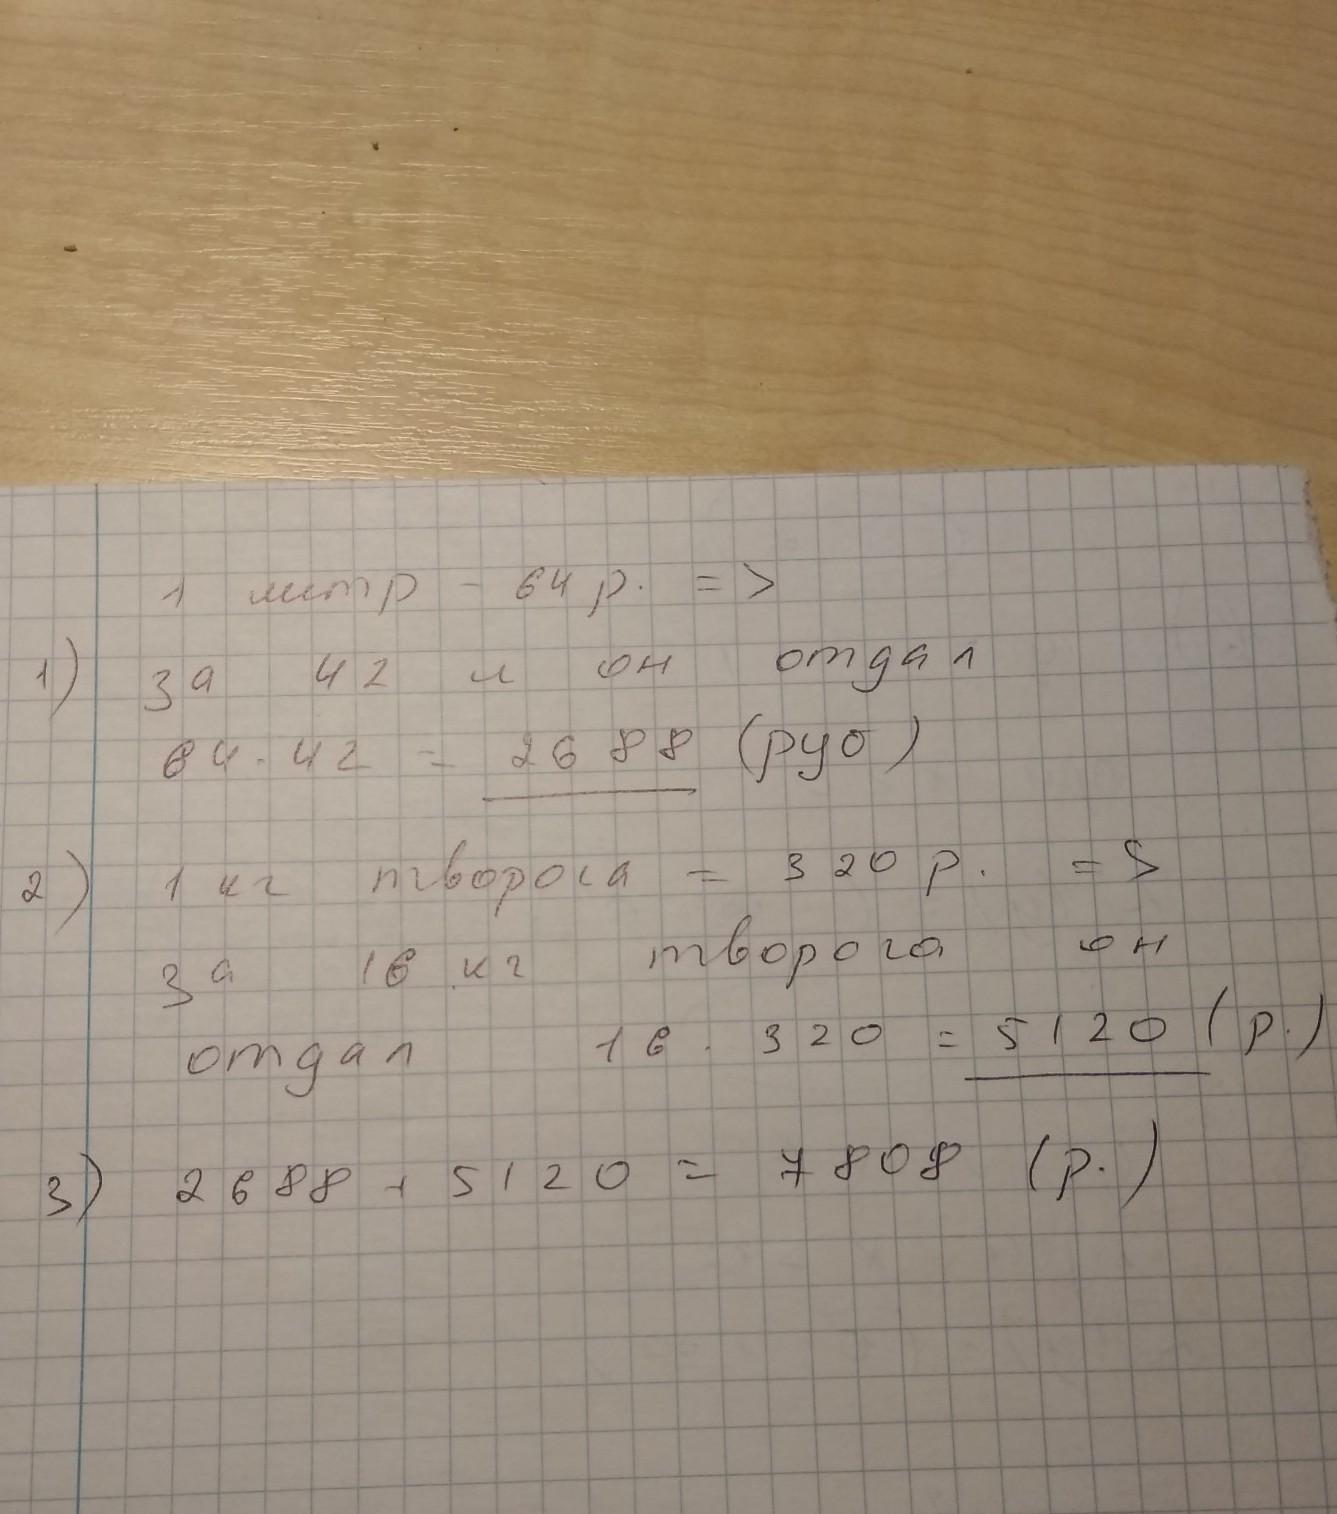 1 литр - 64 р. =>
1) за 42 л он отдал
64 · 42 = 2688 (руб)
2) 1 кг творога = 320 р. =>
за 16 кг творога он
отдал 16 · 320 = 5120 (р.)
3) 2688 + 5120 = 7808 (р.)